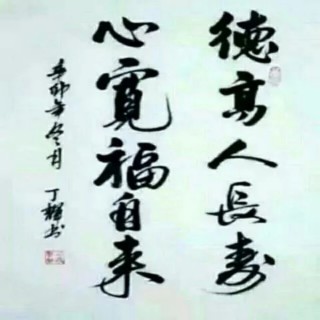 德高人長寿
心寬福自来
辛卯年冬月
丁輝书